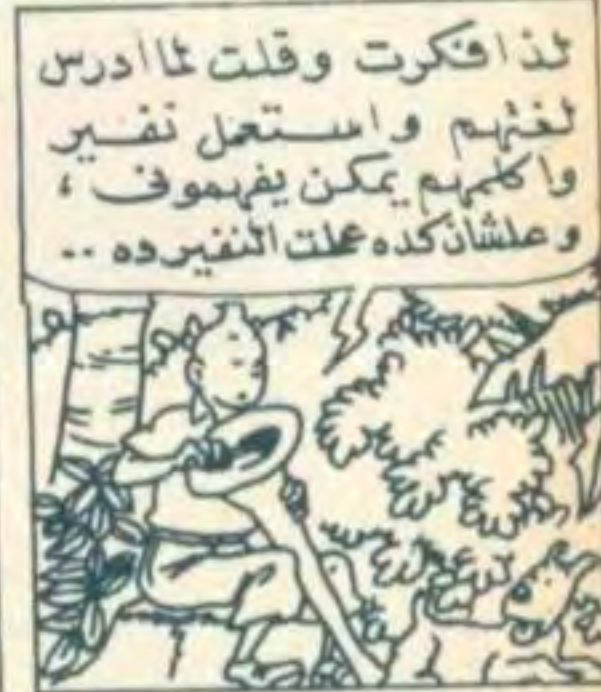 لذا فكرت وقلت لما ادرس
لغتهم واستعمل نفير
واكلمهم يمكن يفهموني ،
وعلشان كده عملت النفير ده ..